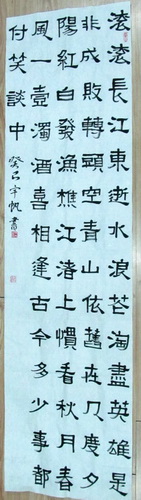 滚滚長江東逝水浪花淘盡英雄是
非成敗轉頭空青山依舊在几度夕
陽紅白發漁樵江渚上慣看秋月春
風一壺濁酒喜相逢古今多少事都
付笑談中 癸巳宇帆書